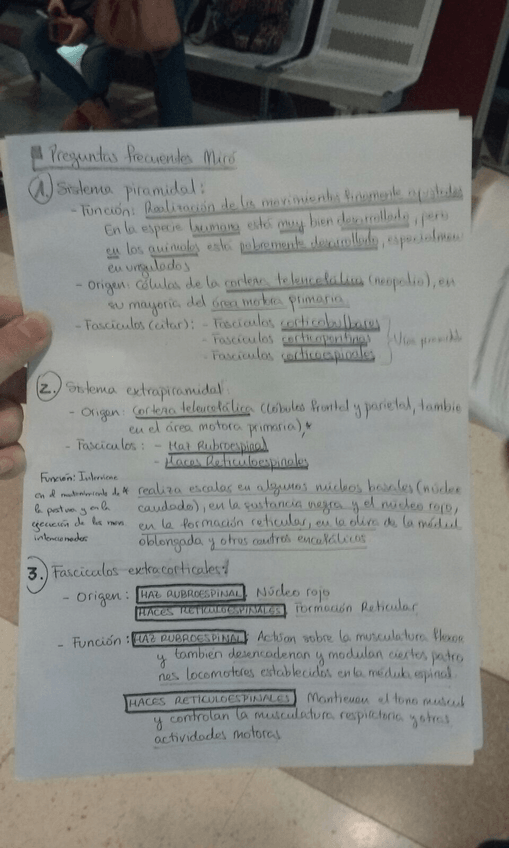 Preguntas frecuentes Miró
1. Sistema piramidal:
- Función: Realización de los movimientos finamente ajustados
En la especie humana está muy bien desarrollado, pero
en los animales está pobremente desarrollado, especialmen
en ungulados
- Origen: células de la corteza telencefálica (neopalio), en
su mayoría del área motora primaria
- Fascículos (citar): - Fascículos corticobulbares
- Fascículos corticopontinos
- Fascículos corticoespinales
Vía piramidal
2. Sistema extrapiramidal:
- Origen: Corteza telencefálica (lóbulos frontal y parietal, tambie
en el área motora primaria),*
- Fascículos: - Haz Rubroespinal
- Haces Reticuloespinales
Función: Interviene
en el mantenimiento de
la postura y en la
ejecución de los mov.
intencionados
* realiza escalas en algunos núcleos basales (núcleo
caudado), en la sustancia negra y el núcleo rojo,
en la formación reticular, en la oliva de la médul
oblongada y otros centros encefálicos
3. Fascículos extracorticales:
- Origen: HAZ RUBROESPINAL Núcleo rojo
HACES RETICULOESPINALES Formación Reticular
- Función: HAZ RUBROESPINAL: Actúan sobre la musculatura flexor
y también desencadenan y modulan ciertos patro
nes locomotores establecidos en la médula espinal.
HACES RETICULOESPINALES Mantienen el tono muscul
y controlan la musculatura respiratoria y otras
actividades motoras